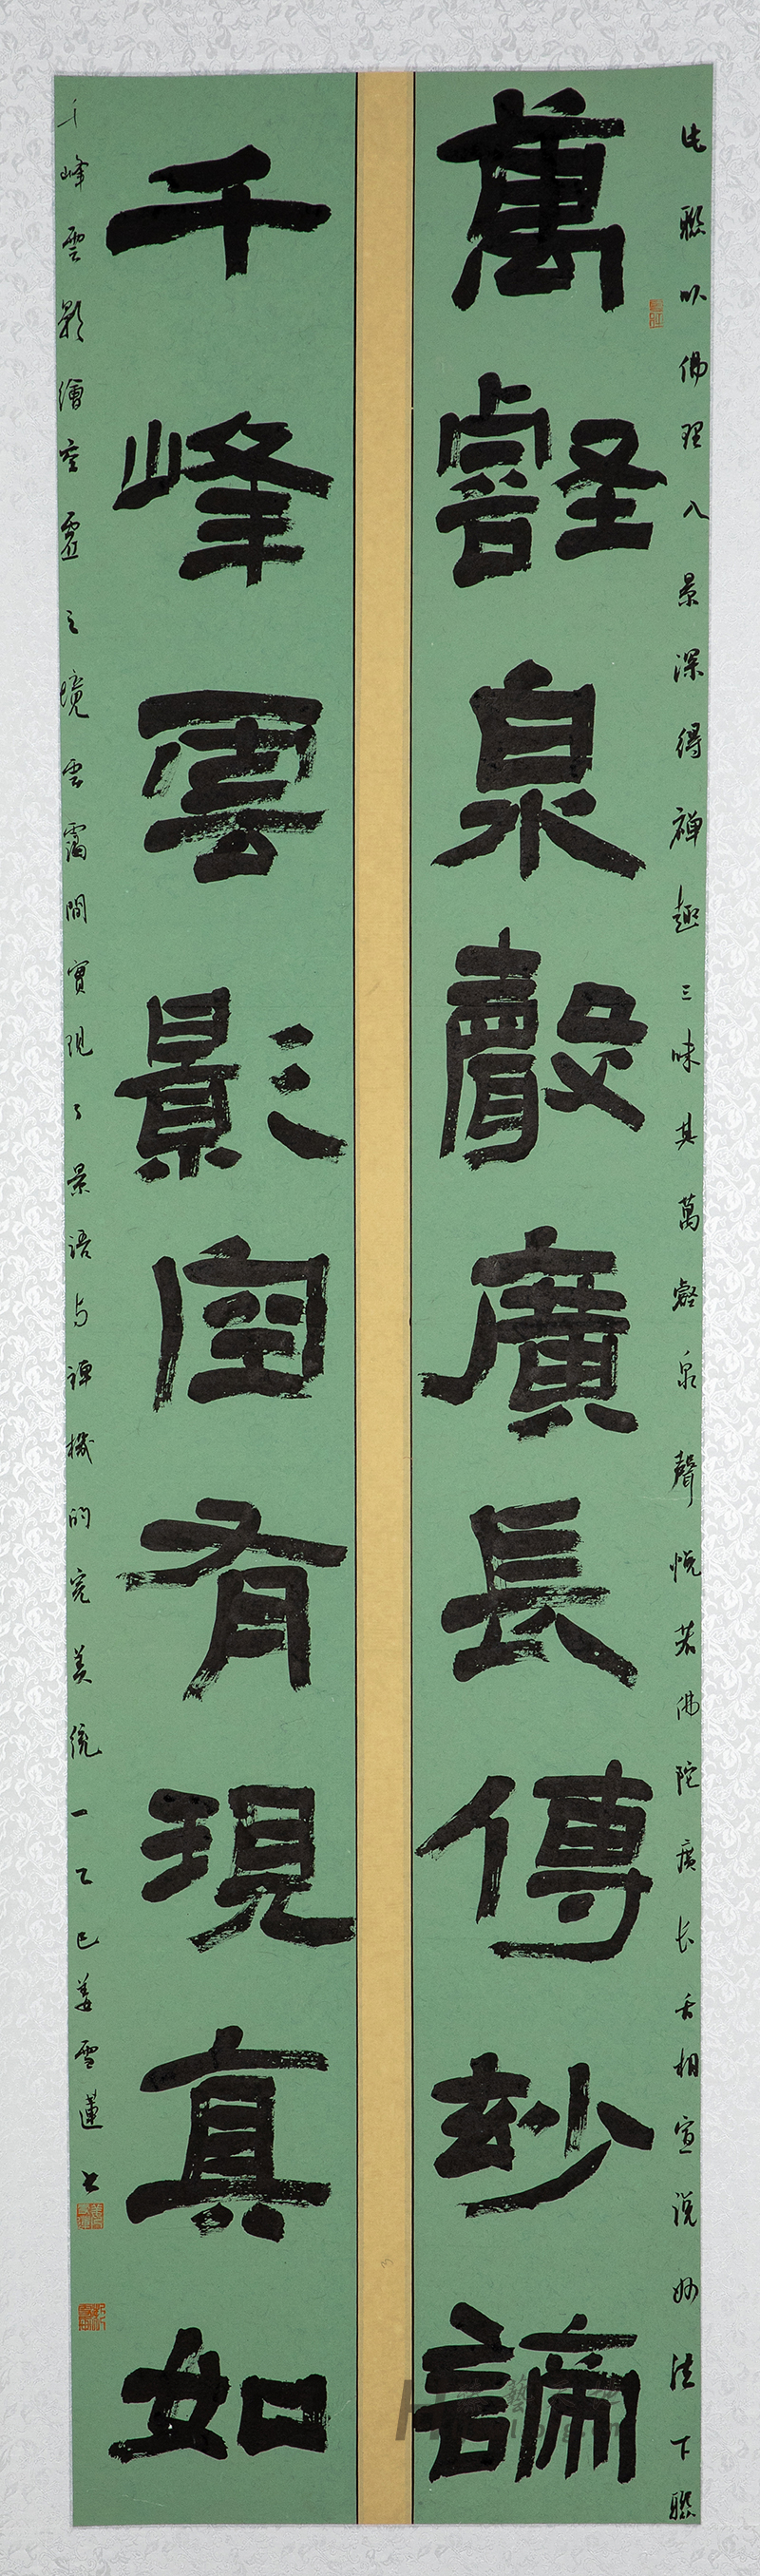 此聯以佛理入景深得禅趣三味其萬壑泉聲悦若佛陀廣长舌相宣说妙法下聯
萬壑泉聲廣長傳玅諦
千峰雲影空有現真如
千峰雲影繪空靈之境雲靄間實現了景語与禅機的完美统一乙巳姜雪蓮书